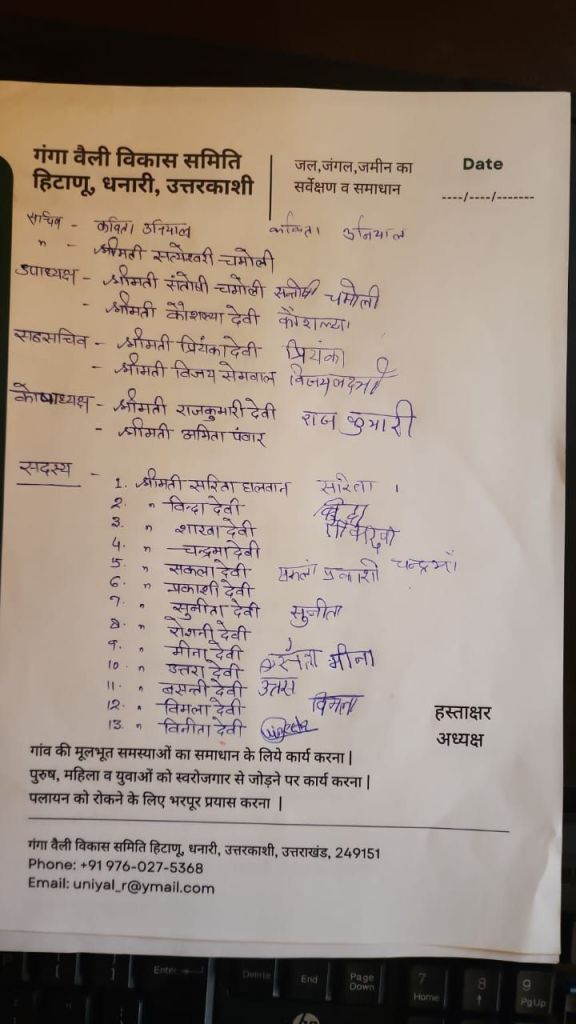 गंगा वैली विकास समिति
हिटाणू, धनारी, उत्तरकाशी
जल,जंगल,जमीन का
सर्वेक्षण व समाधान
Date
----/----/-------
सचिव - कविता उनियाल कविता उनियाल
" - श्रीमती सत्येश्वरी चमोली
उपाध्यक्ष - श्रीमती संतोषी चमोली सन्तोषी चमोली
- श्रीमती कौशल्या देवी कौशल्या
सहसचिव - श्रीमती प्रियंका देवी प्रियंका
- श्रीमती विजय सेमवाल विजयलक्ष्मी
कोषाध्यक्ष - श्रीमती राजकुमारी देवी राजकुमारी
- श्रीमती अमिता पंवार
सदस्य -
1. श्रीमती सरिता हालवान सरिता
2. " विन्द्रा देवी
3. " शाखा देवी
4. " चन्द्रमा देवी चन्द्रमाँ
5. " सकला देवी प्रकाशी
6. " प्रकाशी देवी
7. " सुनीता देवी सुनीता
8. " रोशनी देवी
9. " मीना देवी मीना
10. " उत्तरा देवी
11. " बसन्ती देवी उत्तरा
12. " विमला देवी विमला
13. " विनीता देवी
हस्ताक्षर
अध्यक्ष
गांव की मूलभूत समस्याओं का समाधान के लिये कार्य करना |
पुरुष, महिला व युवाओं को स्वरोजगार से जोड़ने पर कार्य करना |
पलायन को रोकने के लिए भरपूर प्रयास करना |
गंगा वैली विकास समिति हिटाणू, धनारी, उत्तरकाशी, उत्तराखंड, 249151
Phone: +91 976-027-5368
Email: uniyal_r@ymail.com
Enter
Delete
End
Page Down
7 Home
8
9 PgUp
hp